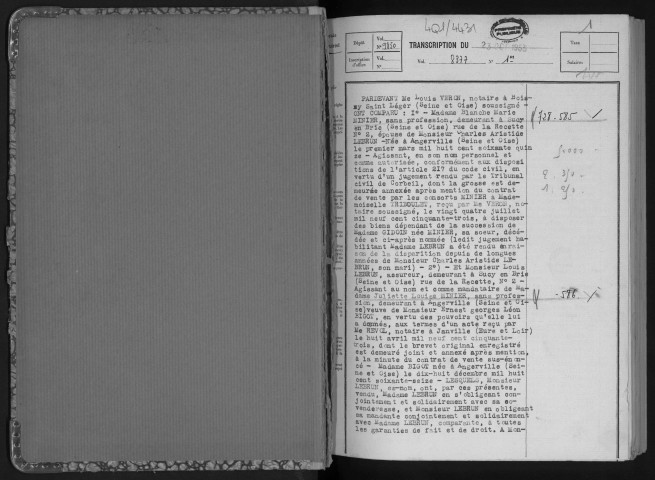 4Q1/4431
1
Dépôt
Vol.
N°
TRANSCRIPTION DU
Taxe
Inscription d'office
Vol.
N°
Vol. 8877 N° 1er
Salaires
PARDEVANT Me Louis VERON, notaire à Bois-
sy Saint Léger (Seine et Oise) soussigné -
ONT COMPARU : I° - Madame Blanche Marie
MINIER, sans profession, demeurant à Sucy
en Brie (Seine et Oise) rue de la Recette
N° 2, épouse de Monsieur Charles Aristide
LEBRUN -Née à Angerville (Seine et Oise)
le premier mars mil huit cent soixante quin
ze - Agissant, en son nom personnel et
comme autorisée, conformément aux disposi
tions de l'article 217 du code civil, en
vertu d'un jugement rendu par le Tribunal
civil de Corbeil, dont la grosse est de-
meurée annexée après mention du contrat
de vente par les consorts MINIER à Made-
moiselle TRIBOULET, reçu par Me VERON, no-
taire soussigné, le vingt quatre juillet
mil neuf cent cinquante-trois, à disposer
des biens dépendant de la succession de
Madame GIDOIN née MINIER, sa soeur, décé-
dée et ci-après nommée (ledit jugement ha-
bilitant Madame LEBRUN a été rendu à rai-
son de la disparition depuis de longues
années de Monsieur Charles Aristide LE-
BRUN, son mari) - 2°) - Et Monsieur Louis
LEBRUN, assureur, demeurant à Sucy en Brie
(Seine et Oise) rue de la Recette, N° 2 -
Agissant au nom et comme mandataire de Ma-
dame Juliette Louise MINIER, sans profes-
sion, demeurant à Angerville (Seine et Oi-
se)veuve de Monsieur Ernest georges Léon
BIGOT, en vertu des pouvoirs qu'elle lui
a donnés, aux termes d'un acte reçu par
Me REVOL, notaire à Janville (Eure et Loir)
le huit avril mil neuf cent cinquante-
trois, dont le brevet original enregistré
est demeuré joint et annexé après mention,
à la minute du contrat de vente sus-énon-
cé - Madame BIGOT née à Angerville (Sei-
ne et Oise) le dix-huit décembre mil huit
cent soixante-seize - LESQUELS, Monsieur
LEBRUN, es-nom, ont, par ces présentes,
vendu, Madame LEBRUN en s'obligeant con-
jointement et solidairement avec sa co-
venderesse, et Monsieur LEBRUN en obligeant
sa mandante conjointement et solidairement
avec Madame LEBRUN, comparante, à toutes
les garanties de fait et de droit. A Mon-
728-585